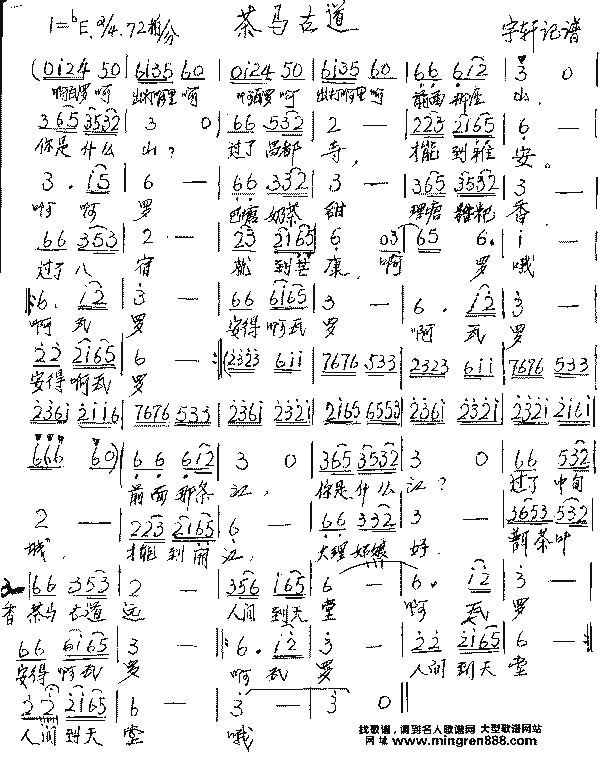 茶马古道
1=ᵇE 2/4 72拍/分 宇轩记谱
(0124 50 | 6135 60 | 0124 50 | 6135 60 | 66 612 | 3 0 |
前面那座 山,
365 3532 | 3 0 | 66 532 | 2 — | 223 2165 | 6 — |
你是什么 山? 过了昌都 寺, 才能到雅 安。
3. 15 | 6 — | 66 332 | 3 — | 365 3532 | 3 — |
啊 啊 罗 奶茶 甜 香,
66 353 | 2 — | 23 2165 | 6 03 | 65 6. | 1 — |
过了八 宿 就到 康, 啊 罗 哦
6. 12 | 3 — | 66 6165 | 3 — | 6. 12 | 3 — |
啊 瓦 罗 安得啊瓦 罗 啊 瓦 罗
22 2165 | 6 — :| (2323 611 | 7676 533 | 2323 611 | 7676 533 |
安得啊瓦 罗
2361 2116 | 7676 533 | 2361 2321 | 2165 6553 | 2361 2321 | 2321 2161 |
666 60) | 66 612 | 3 0 | 365 3532 | 3 0 | 66 532 |
前面那条 江, 你是什么 江? 过了中甸
2 — | 223 2165 | 6 — | 66 332 | 3 — | 3653 532 |
城, 才能到丽 江, 大理 好, 茶叶
66 353 | 2 — | 356 165 | 6 — | 6. 12 | 3 — |
香 茶马古道 远 人间到天 堂 啊 瓦 罗
66 6165 | 3 — |: 6. 12 | 3 — | 22 2165 | 6 — |
安得啊瓦 罗 啊 瓦 罗 人间到天 堂
22 2165 | 6 — | 3 — | 3 0 ||
人间到天 堂 哦
找歌谱,请到名人歌谱网 大型歌谱网站
网址 www.mingren888.com